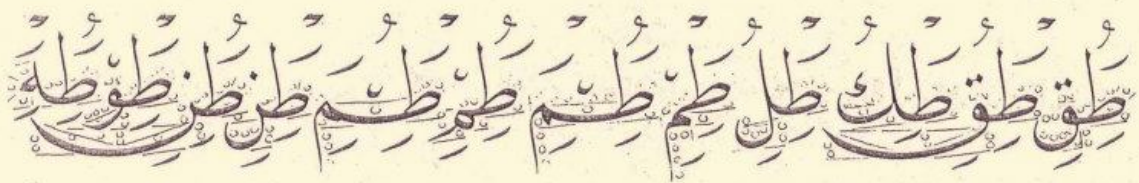 طق طق طك طل طم طم طم طم طن طن طو طه